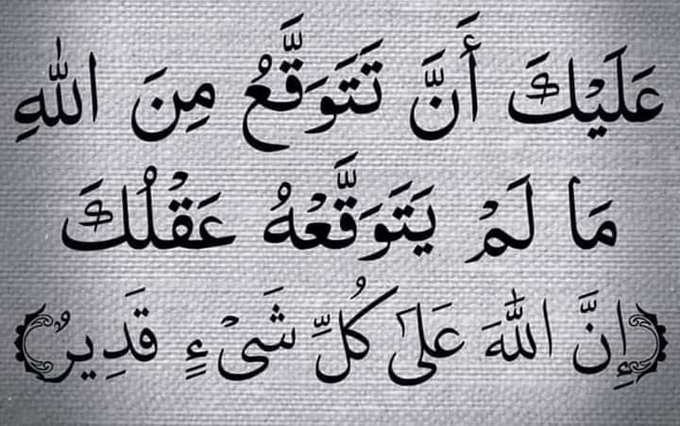 عَلَيْكَ أَنَّ تَتَوَقَّعُ مِنَ اللّٰهِ
مَا لَمْ يَتَوَقَّعْهُ عَقْلُكَ
﴿إِنَّ اللّٰهَ عَلَىٰ كُلِّ شَىْءٍ قَدِيرٌ﴾